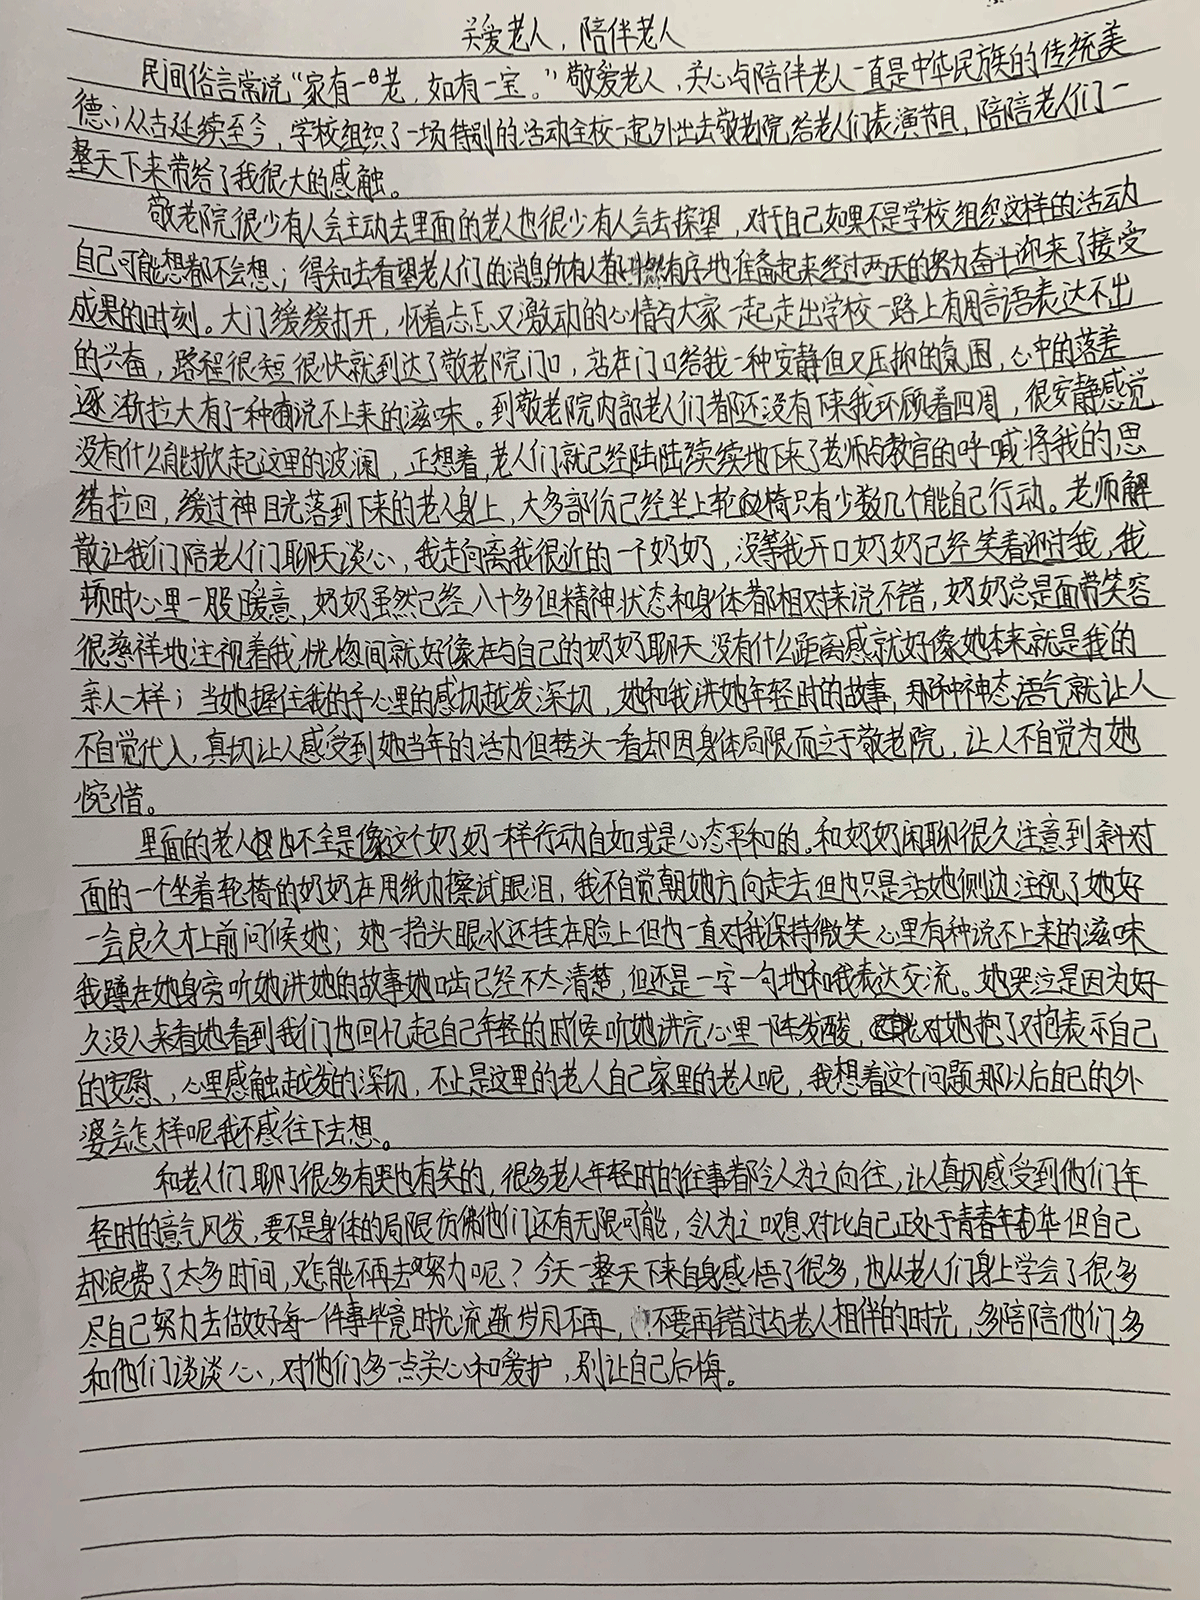 关爱老人，陪伴老人
民间俗言常说“家有一老，如有一宝。”敬爱老人，关心与陪伴老人一直是中华民族的传统美
德；从古延续至今，学校组织了一场特别的活动全校一起外出去敬老院，给老人们表演节目，陪陪老人们一
整天下来带给了我很大的感触。
敬老院很少有人会主动去里面的老人也很少有人会去探望，对于自己如果不是学校组织这样的活动
自己可能想都不会想；得知去看望老人们的消息所有人都井然有序地准备起来经过两天的努力奋斗迎来了接受
成果的时刻。大门缓缓打开，怀着忐忑又激动的心情与大家一起走出学校一路上有用言语表达不出
的兴奋，路程很短很快就到达了敬老院门口，站在门口给我一种安静但又压抑的氛围，心中的落差
逐渐拉大有了一种说不上来的滋味。到敬老院内部老人们都还没有下来我环顾着四周，很安静感觉
没有什么能掀起这里的波澜，正想着，老人们就已经陆陆续续地下来了老师与教官的呼喊将我的思
绪拉回，缓过神目光落到下来的老人身上，大多部份已经坐上轮椅只有少数几个能自己行动。老师解
散让我们陪老人们聊天谈心，我走向离我很近的一个奶奶，没等我开口奶奶已经笑着迎过我，我
顿时心里一股暖意，奶奶虽然已经八十多但精神状态和身体都相对来说不错，奶奶总是面带笑容
很慈祥地注视着我，恍惚间就好像在与自己的奶奶聊天没有什么距离感就好像她本来就是我的
亲人一样；当她握住我的手心里的感切越发深切，她和我讲她年轻时的故事，那种神态语气就让人
不自觉代入，真切让人感受到她当年的活力但转头一看却因身体局限而立于敬老院，让人不自觉为她
惋惜。
里面的老人也不全是像这个奶奶一样行动自如或是心态平和的。和奶奶闲聊很久注意到斜对
面的一个坐着轮椅的奶奶在用纸巾擦试眼泪，我不自觉朝她方向走去但也只是站她侧边注视了她好
一会良久才上前问候她；她一抬头眼水还挂在脸上但也一直对我保持微笑心里有种说不上来的滋味
我蹲在她身旁听她讲她的故事她口齿已经不太清楚，但还是一字一句地和我表达交流。她哭泣是因为好
久没人来看她看到我们也回忆起自己年轻的时候听她讲完心里一阵发酸，对她抱了又抱表示自己
的安慰、心里感触越发的深切，不止是这里的老人自己家里的老人呢，我想着这个问题那以后自己的外
婆会怎样呢我不感往下去想。
和老人们聊了很多有哭也有笑的，很多老人年轻时的往事都令人为之向往，让人真切感受到他们年
轻时的意气风发，要不是身体的局限仿佛他们还有无限可能，令人为之叹息对比自己正处于青春年华但自己
却浪费了太多时间，又怎能不再去努力呢？今天一整天下来自身感悟了很多，也从老人们身上学会了很多
尽自己努力去做好每一件事毕竟时光流逝岁月不再，不要再错过与老人相伴的时光，多陪陪他们多
和他们谈谈心，对他们多一点关心和爱护，别让自己后悔。